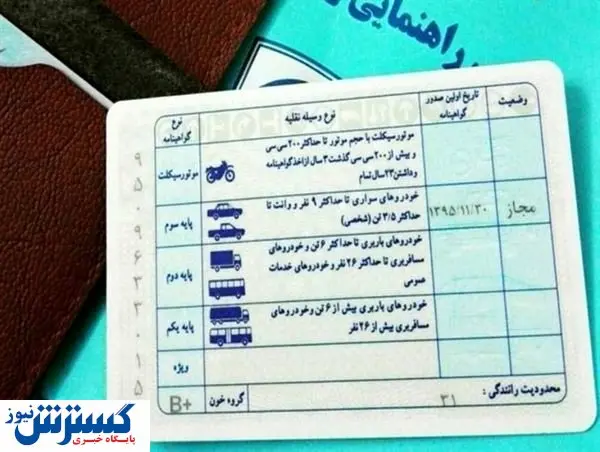 راهنمایی
نوع گواهینامه
نوع وسیله نقلیه
تاریخ اولین صدور گواهینامه
وضعیت
موتورسیکلت
موتورسیکلت با حجم موتور تا حداکثر ۲۰۰ سی سی
و بیش از ۲۰۰ سی سی گذشت ۳ سال از اخذ گواهینامه
وداشتن ۲۳ سال تمام
پایه سوم
خودروهای سواری تا حداکثر ۹ نفر و وانت تا
حداکثر ۳/۵ تن (شخصی)
۱۳۹۵/۱۱/۳۰
مجاز
پایه دوم
خودروهای باربری تا حداکثر ۶ تن و خودروهای
مسافربری تا حداکثر ۲۶ نفر و خودروهای خدمات
عمومی
پایه یکم
خودروهای باربری بیش از ۶ تن و خودروهای
مسافربری بیش از ۲۶ نفر
ویژه
محدودیت رانندگی : ۳۱
گروه خون B+
۹۵۰۹۶۳۳۰۱۵
گسترش نیوز
پایگاه خبری